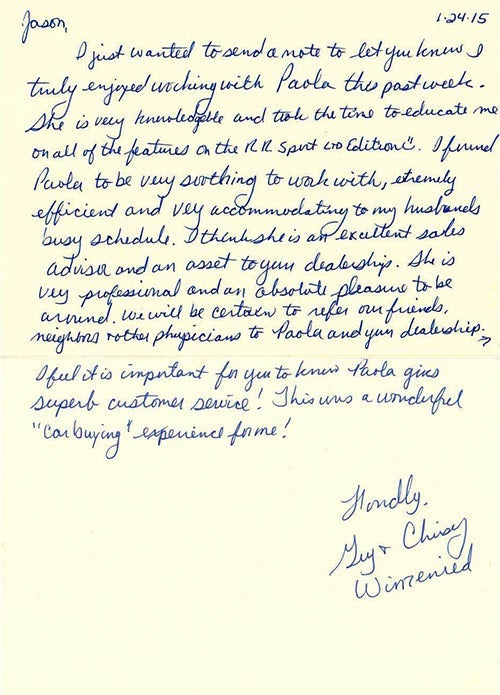 Jason, 1-24-15
I just wanted to send a note to let you know I
truly enjoyed working with Paola this past week.
She is very knowledgable and took the time to educate me
on all of the features on the R.R. Sport LTD Edition". I found
Paola to be very soothing to work with, etremely
efficient and very accommodating to my husbands
busy schedule. I think she is an excellent sales
advisor and an asset to your dealership. She is
very professional and an absolute pleasure to be
around. We will be certain to refer our friends,
neighbors + other physicians to Paola and your dealership.
I feel it is important for you to know Paola gives
superb customer service! This was a wonderful
"Car buying" experience for me!
Fondly,
Guy + Chrisy
Winzenried